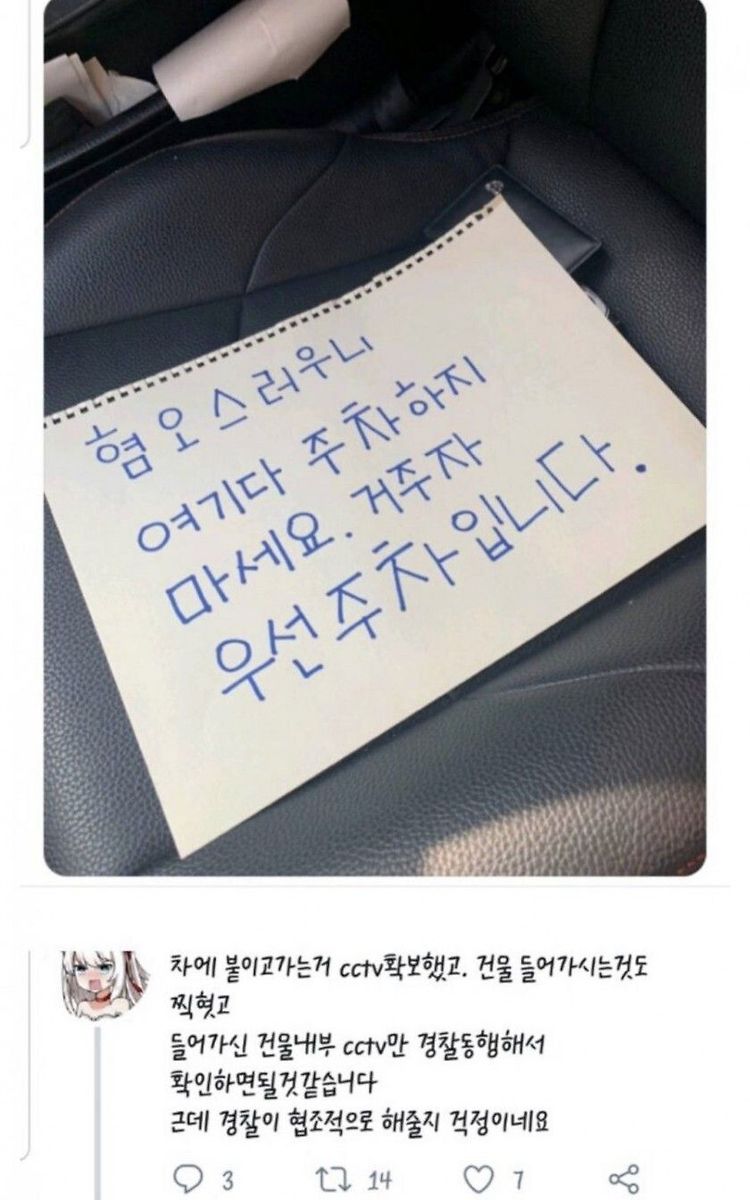 혐오스러우니
여기다 주차하지
마세요. 거주자
우선주차입니다.
차에 붙이고가는거 cctv확보했고. 건물 들어가시는것도
찍혔고
들어가신 건물내부 cctv만 경찰동행해서
확인하면될것같습니다
근데 경찰이 협조적으로 해줄지 걱정이네요
3 14 7